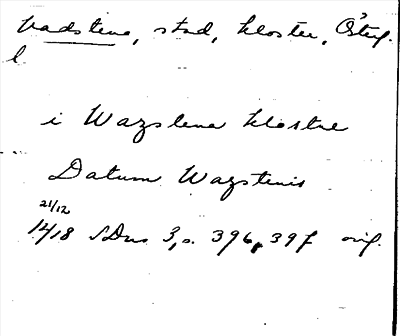 Vadstena, stad, kloster, Östg.
l
i Wazstena klostre
Datum Wazstenis
21/12
1418 SDns 3, s. 396, 397 orig.